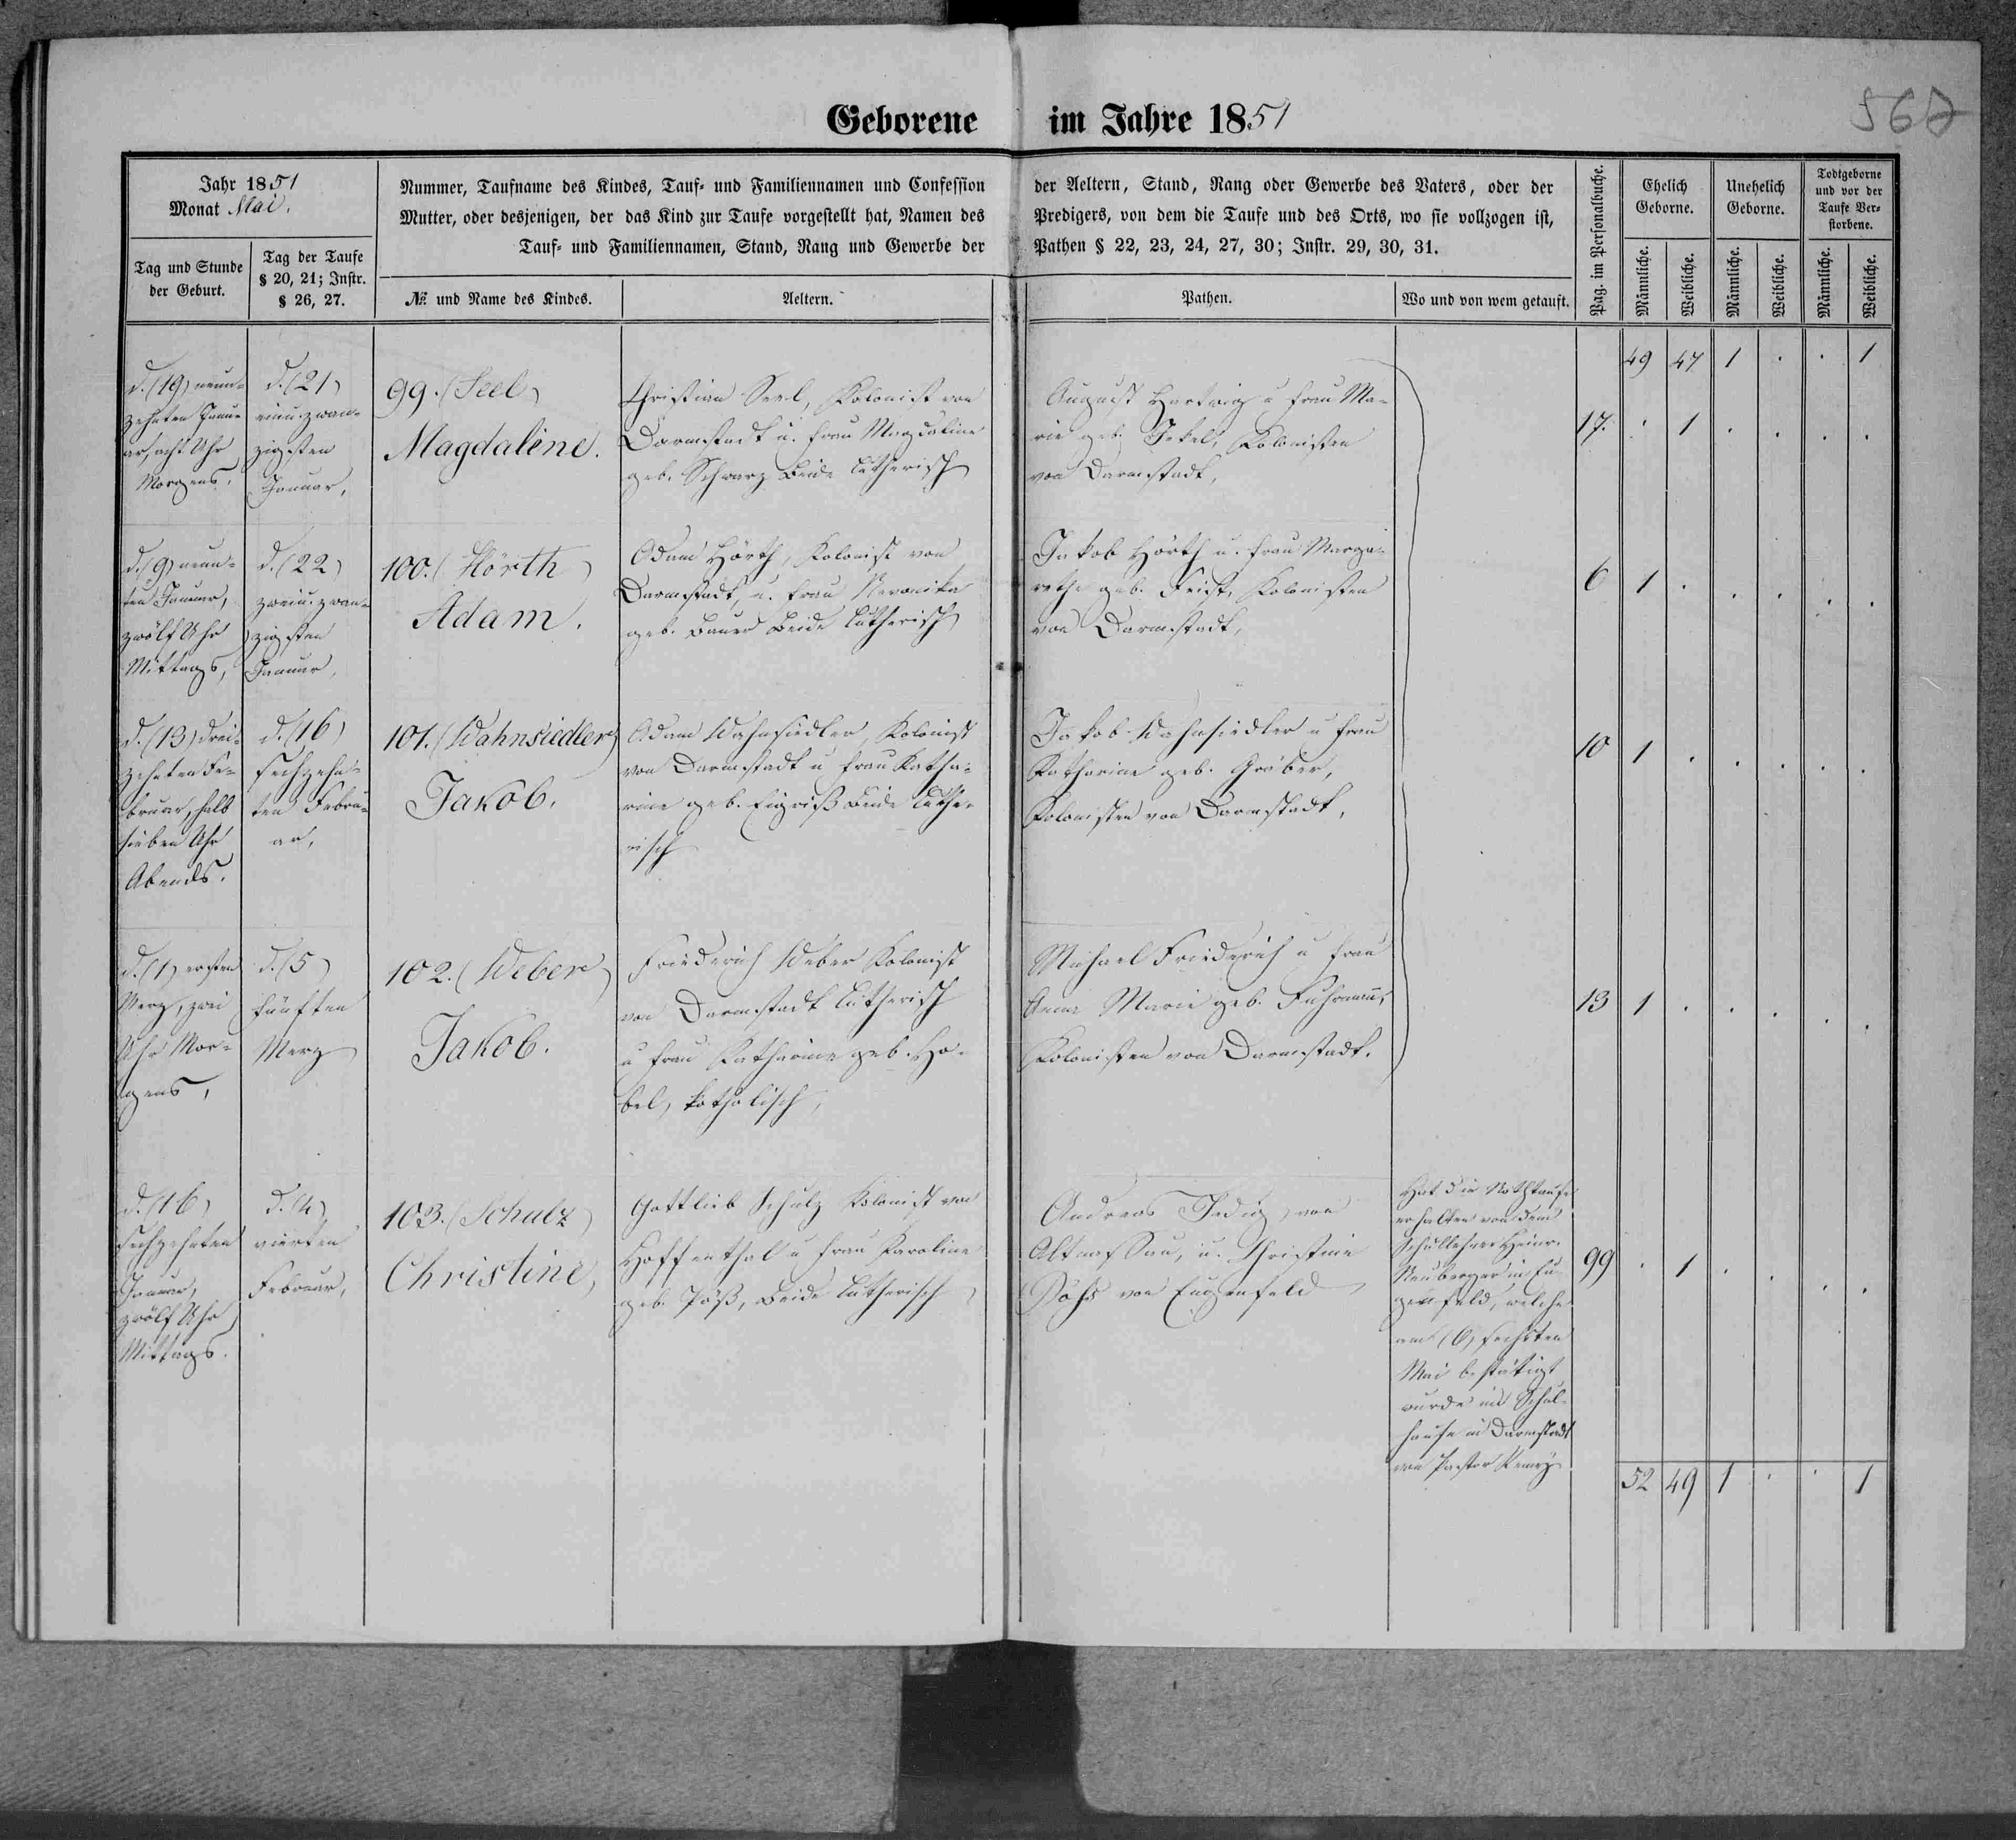 567
Geborene im Jahre 1851
Jahr 1851
Monat Mai.
Tag und Stunde
der Geburt.
Tag der Taufe
§ 20, 21; Instr.
§ 26, 27.
Nummer, Taufname des Kindes, Tauf- und Familiennamen und Confession
Mutter, oder desjenigen, der das Kind zur Taufe vorgestellt hat, Namen des
Tauf- und Familiennamen, Stand, Rang und Gewerbe der
№ und Name des Kindes.
Aeltern.
der Aeltern, Stand, Rang oder Gewerbe des Vaters, oder der
Predigers, von dem die Taufe und des Orts, wo sie vollzogen ist,
Pathen § 22, 23, 24, 27, 30; Instr. 29, 30, 31.
Pathen.
Wo und von wem getauft.
Pag. im Personalbuche.
Ehelich
Geborne.
Unehelich
Geborne.
Todtgeborne
und vor der
Taufe Ver-
storbene.
Männliche.
Weibliche.
Männliche.
Weibliche.
Männliche.
Weibliche.
49 47 1 . . 1
d. (19) neun-
zehnten Janu-
ar, acht Uhr
Morgens,
d. (21)
einu. zwan-
zigsten
Januar,
99. (Seel)
Magdalene.
Christian Seel, Kolonist von
Darmstadt u. Frau Magdaline
geb. Schwarz beide lutherisch
August Hartwig u Frau Ma-
rie geb. Jekel, Kolonisten
von Darmstadt,
17. . 1 . . . .
d. (9) neun-
ten Januar,
zwölf Uhr
Mittags,
d. (22)
zweiu. zwan-
zigsten
Januar,
100. (Hörth)
Adam.
Adam Hörth, Kolonist von
Darmstadt, u. Frau Veronika
geb. Bauer beide lutherisch
Jakob Hörth u. Frau Marga-
rethe geb. Feist, Kolonisten
von Darmstadt,
6 1 . . . . .
d. (13) drei-
zehnten Fe-
bruar, halb
sieben Uhr
Abends.
d. (16)
sechzehn-
ten Febru-
ar,
101. (Wahnsiedler)
Jakob.
Adam Wahnsiedler, Kolonist
von Darmstadt u Frau Katha-
rine geb. beide luthe-
risch
Jakob Wahnsiedler u Frau
Katharine geb. Gräber,
Kolonisten von Darmstadt,
10 1 . . . . .
d. (1) ersten
Merz, zwei
Uhr Mor-
gens,
d. (5)
fünften
Merz
102. (Weber)
Jakob.
Friederich Weber Kolonist
von Darmstadt lutherisch
u Frau Katharine geb. Ho-
bel, katholisch,
Michael Friederich u Frau
Anna Marie geb. Fuhrmann,
Kolonisten von Darmstadt.
13 1 . . . . .
d. (16)
sechzehnten
Januar,
zwölf Uhr
Mittags.
d. (4)
vierten
Februar,
103. (Schulz)
Christine,
Gottlieb Schulz Kolonist von
Hoffenthal u Frau Karoline
geb. beide lutherisch
Andreas von
Altnassau, u. Christine
von Eugenfeld
Hat die Nothtaufe
erhalten von dem
Schullehrer Heinr.
Neuberger in Eu-
genfeld, welche
am (6) sechsten
Mai bestätigt
wurde im Schul-
hause in Darmstadt
von Pastor
99 . 1 . . . .
52 49 1 . . 1